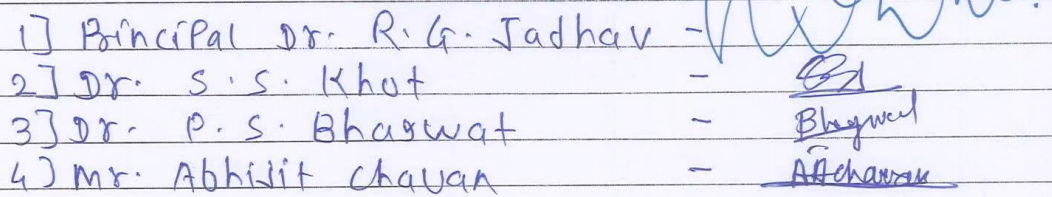 1] Principal Dr. R. G. Jadhav -
2] Dr. S. S. Khot -
3] Dr. P. S. Bhagwat - Bhagwat
4) Mr. Abhijit Chavan - AAchavan